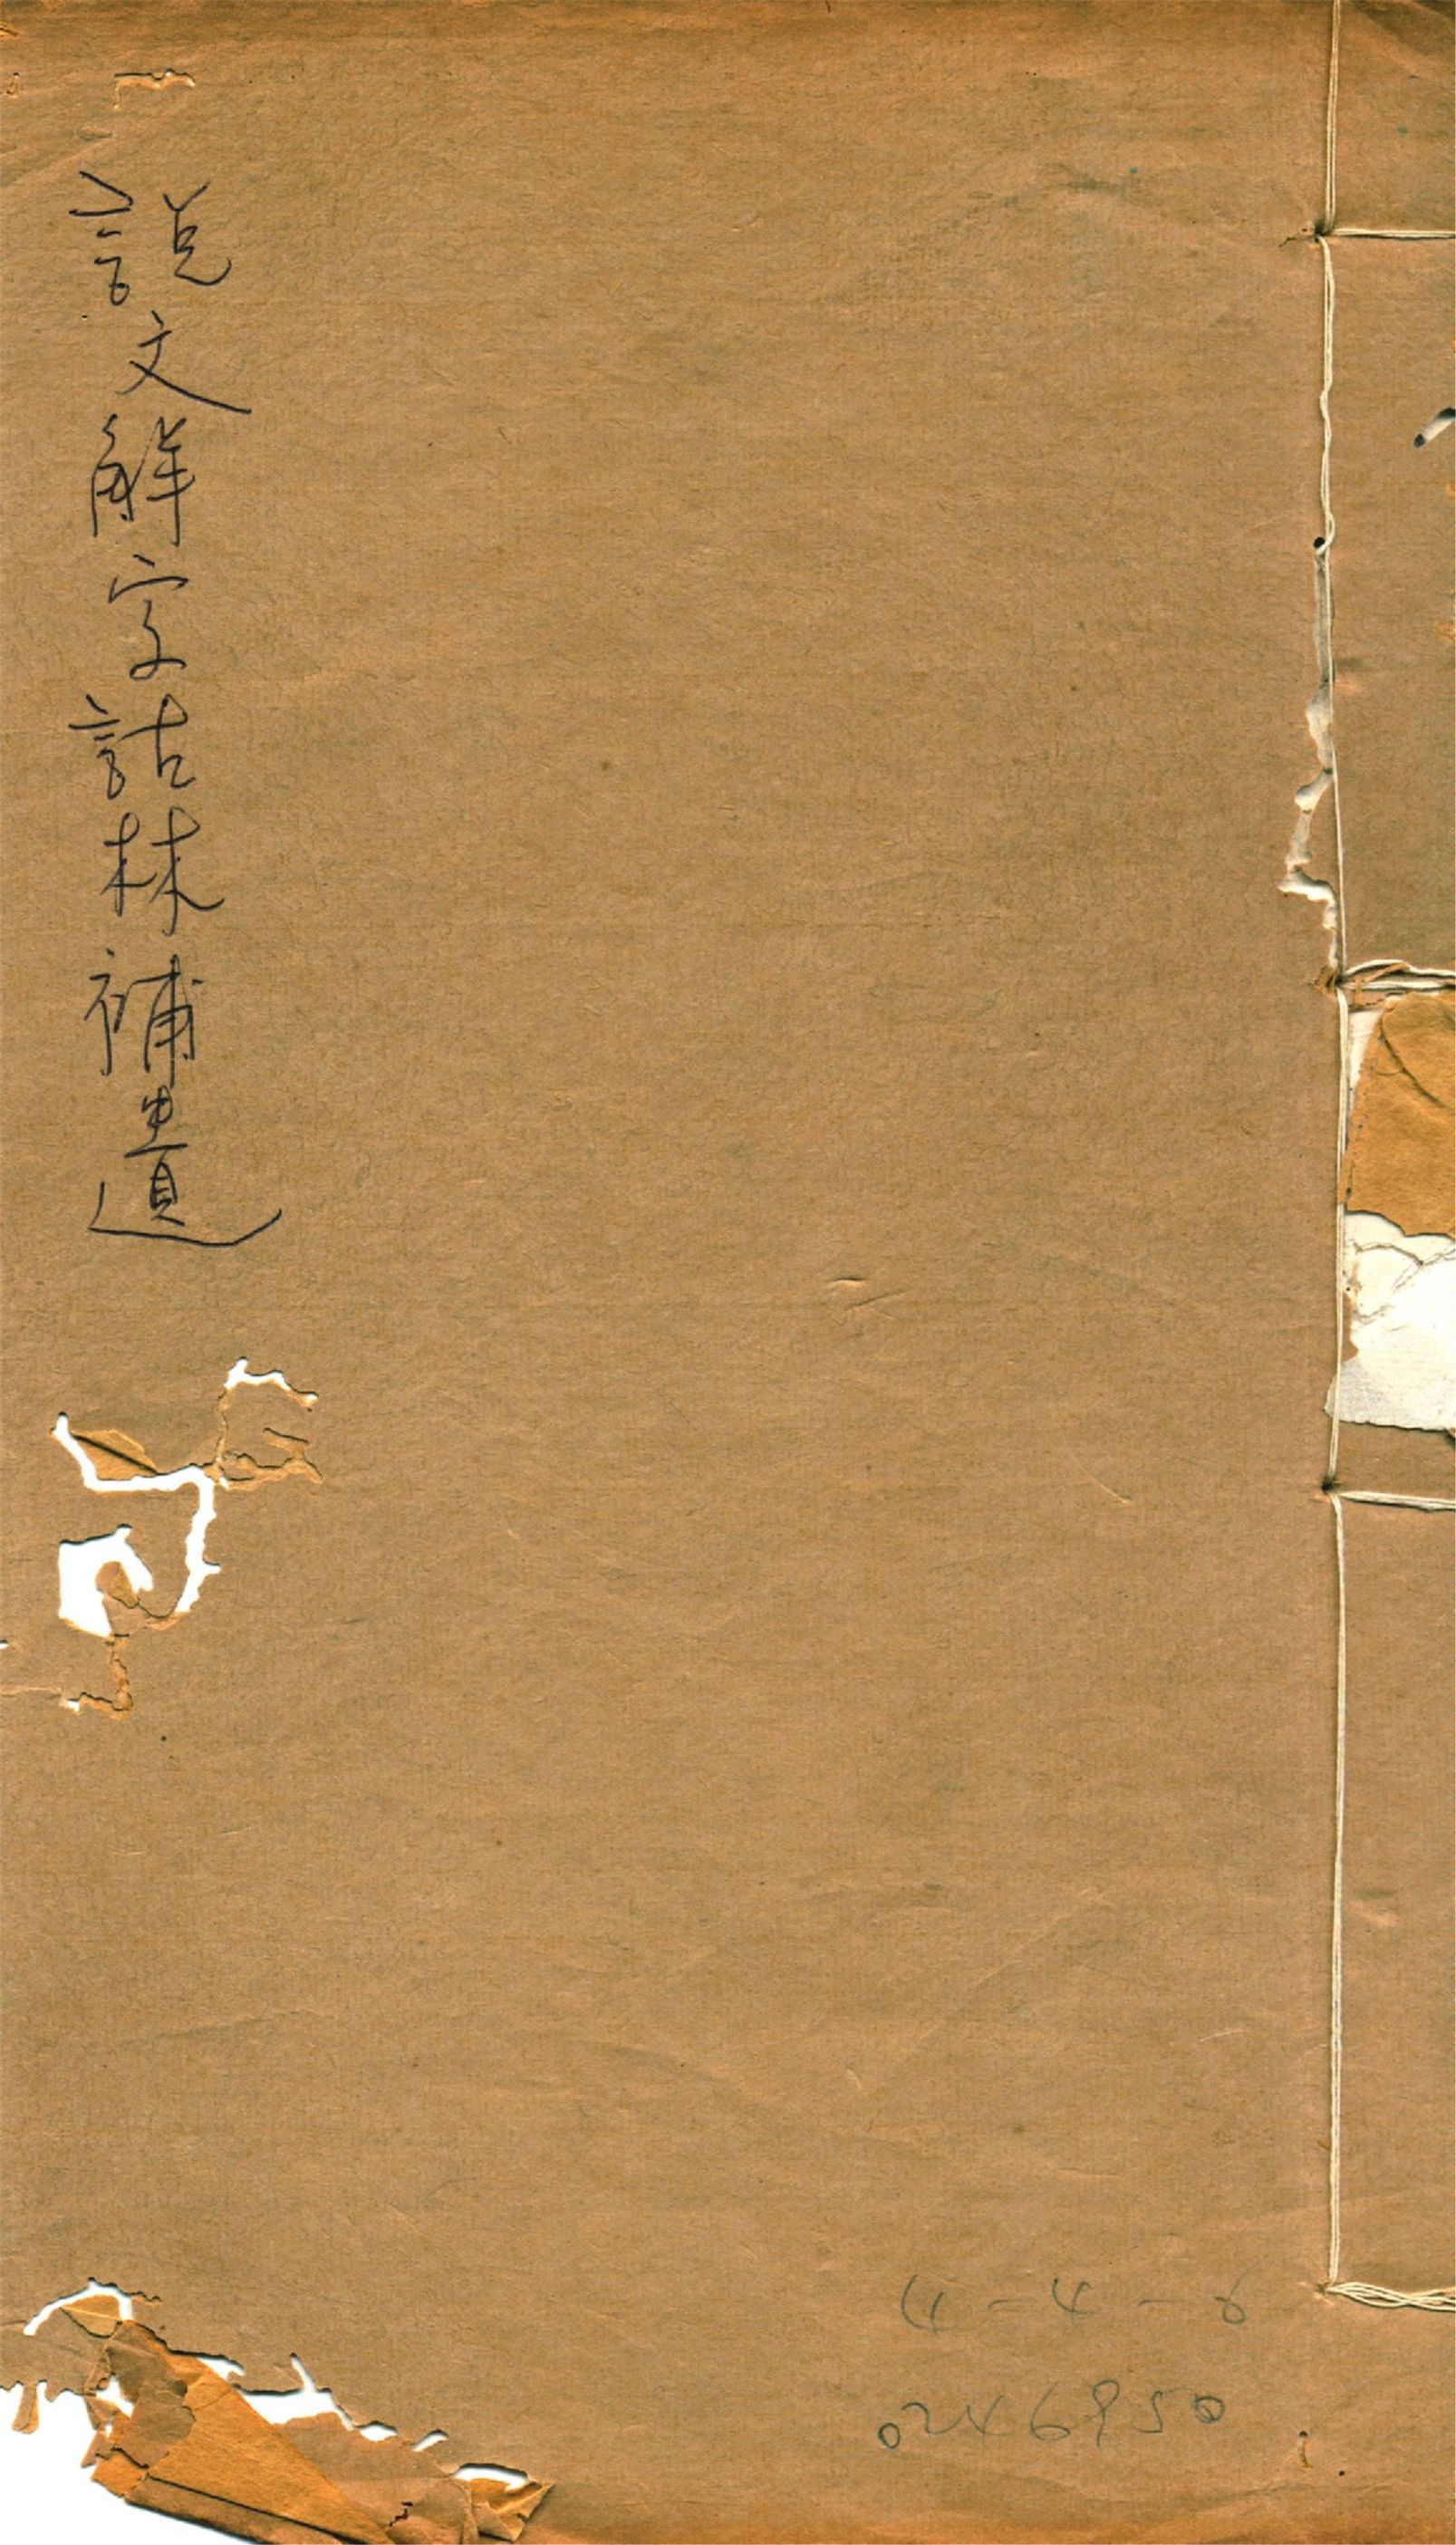 說文解字詁林補遺
4-4-6
0246950